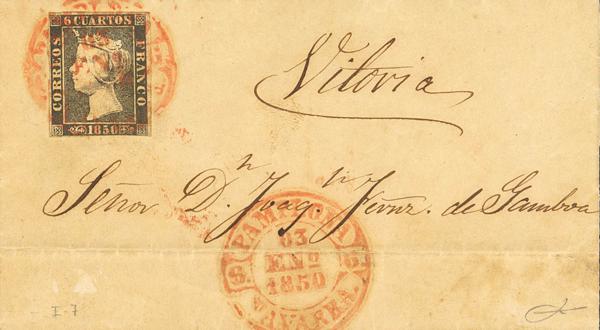 6 CUARTOS
CORREOS
FRANCO
1850
Vitoria
Señor Dn. Joaqn. Jimnz. de Gamboa
PAMPLONA
03
ENº
1850
NAVARRA
I-7